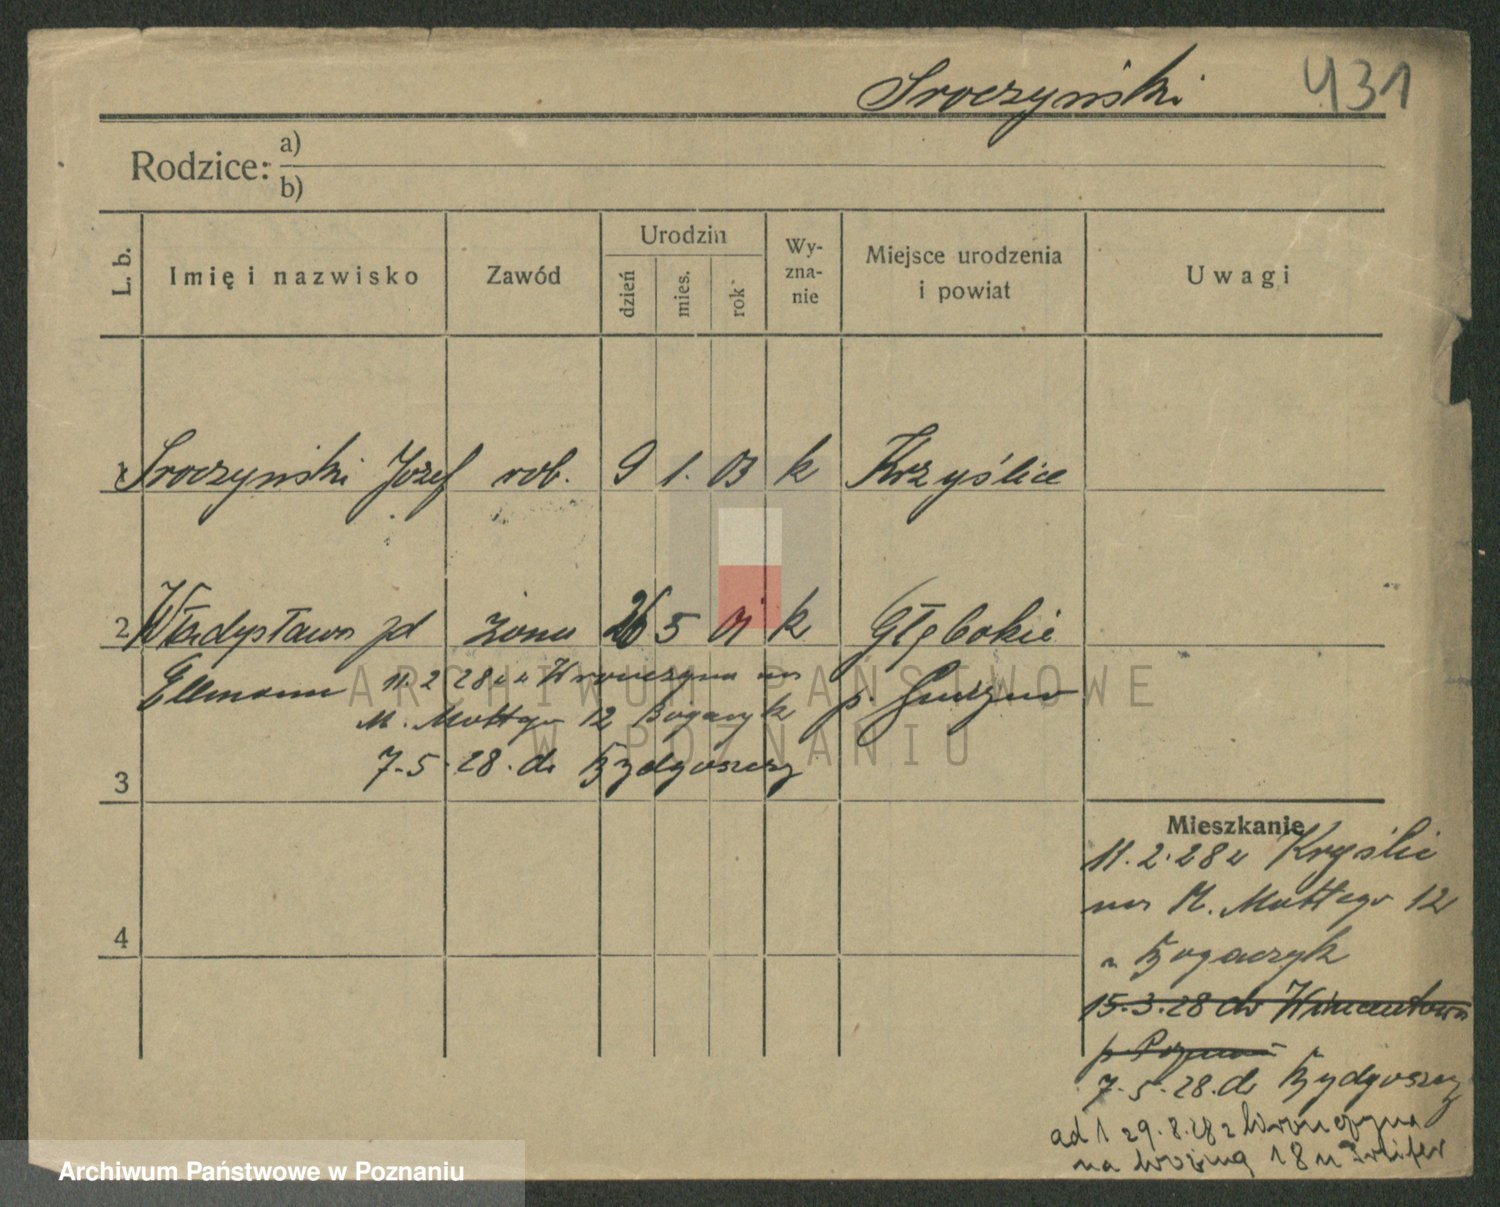 Sroczyński 431
Rodzice: a)
b)
L. b.
Imię i nazwisko
Zawód
Urodzin
dzień
mies.
rok
Wy-
zna-
nie
Miejsce urodzenia
i powiat
Uwagi
1 Sroczyński Józef rob. 9 1. 03 k Krzyślice
2 Władysława zd żona 26 5 01 k Głębokie
Ellmann 11. 2 28 na
M. Mottego 12 Bogaczyk p.
3 7-5-28. do Bydgoszczy
Mieszkanie
11. 2. 28 z Kryślic
na M. Mottego 12
u Bogaczyk
4
15.-3.-28 do
p Poznań
7.-5.-28. do Bydgoszczy
ad 1 29. 8. 28 z Wronczyna
na 18 u
ARCHIWUM PAŃSTWOWE
W POZNANIU
Archiwum Państwowe w Poznaniu